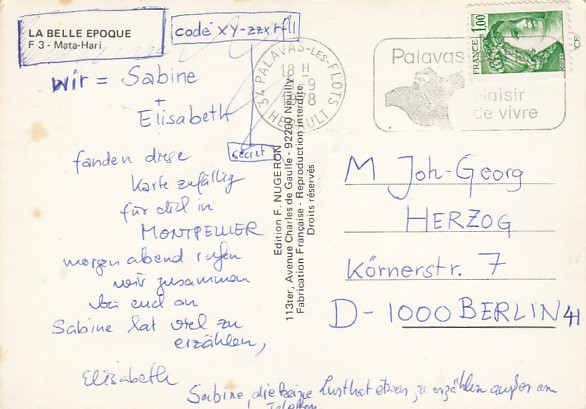 LA BELLE EPOQUE
F 3 - Mata-Hari
code XY-zzxrfll
secret
wir = Sabine
+
Elisabeth
fanden diese
Karte zufällig
für dich in
MONTPELLIER
morgen abend rufen
wir zusammen
bei euch an
Sabine hat viel zu
erzählen,
Elisabeth
Sabine, die keine Lust hat etwas zu erzählen außer am
Telefon
Edition F. NUGERON
113ter, Avenue Charles de Gaulle - 92200 Neuilly
Fabrication Française - Reproduction interdite
Droits réservés
34 PALAVAS-LES-FLOTS
18 H
HERAULT
Palavas
plaisir
de vivre
FRANCE 1,00
M Joh-Georg
HERZOG
Körnerstr. 7
D-1000 BERLIN 41